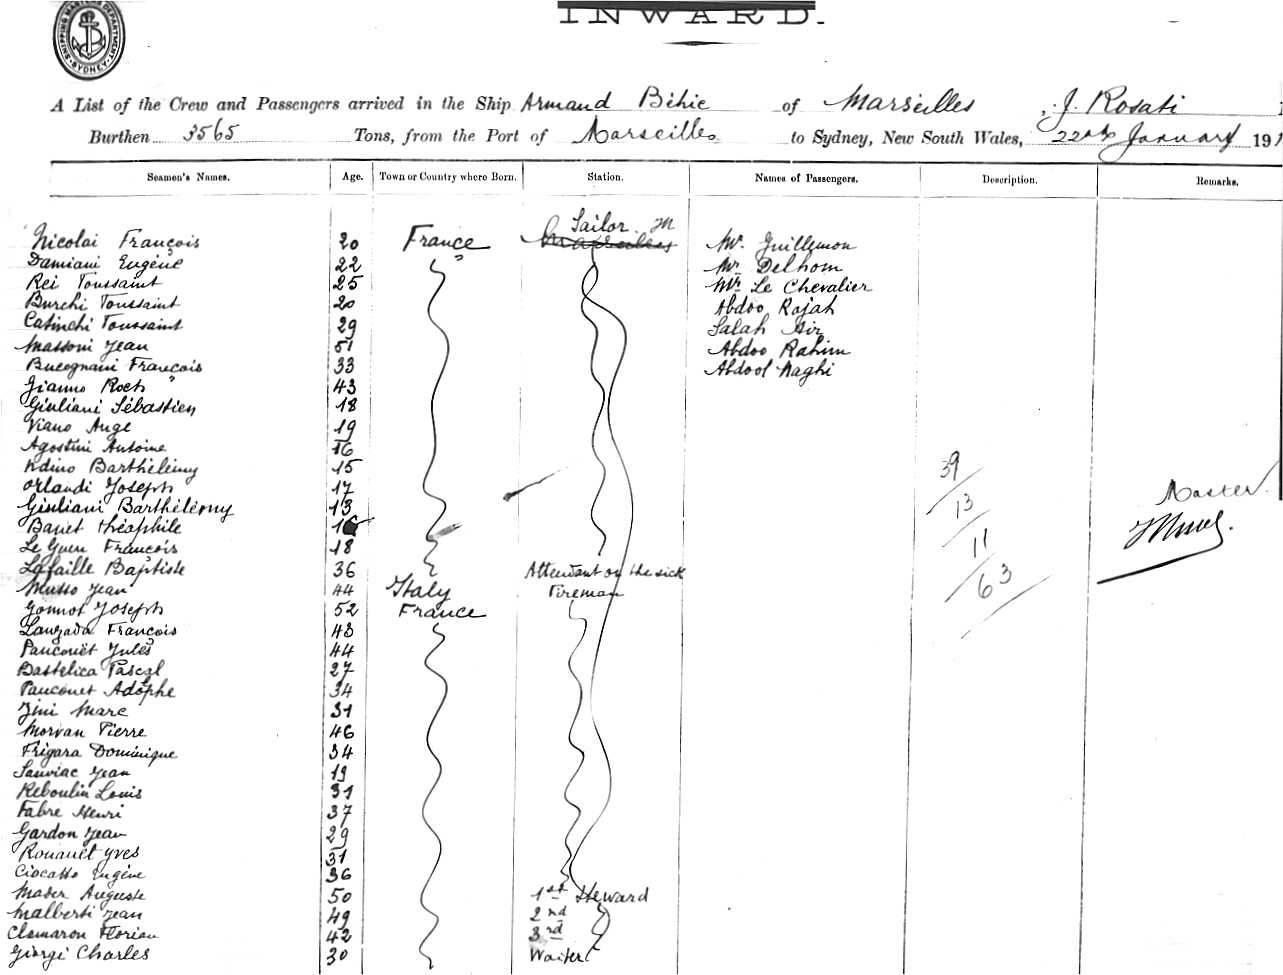 SHIPPING MASTERS DEPARTMENT
SYDNEY
INWARD.
A List of the Crew and Passengers arrived in the Ship Armand Béhic of Marseilles, J. Rosati
Burthen 3565 Tons, from the Port of Marseilles to Sydney, New South Wales, 22nd January 191
Seamen's Names. Age. Town or Country where Born. Station. Names of Passengers. Description. Remarks.
Nicolai François 20 France Sailor Mr. Guillemon
Damiani Eugène 22 Mr. Delhom
Rei Toussaint 25 Mr. Le Chevalier
Burchi Toussaint 20 Abdoo Rajah
Catinchi Toussaint 29 Salah Air
Massoni Jean 51 Abdoo Rahim
Bucognani François 33 Abdool Naghi
Gianno Roch 43
Giuliani Sébastien 18
Viano Ange 19
Agostini Antoine 16
Kdino Barthélémy 15 39
Orlandi Joseph 17 Master.
Giuliani Barthélémy 13 13
Banet Théophile 16
Le Guen François 18 11
Lafaille Baptiste 36 Attendant on the sick
Musso Jean 44 Italy Fireman 63
Gonnot Joseph 52 France
Lanzada François 43
Pancouët Jules 44
Bastelica Pascal 27
Pancouet Adophe 34
Zini Marc 31
Morvan Pierre 46
Frigara Dominique 34
Sauviac Jean 19
Reboulin Louis 31
Fabre Henri 37
Gardon Jean 29
Rouanet Yves 31
Ciocasso Eugène 36
Mader Auguste 50 1st Steward
Malberti Jean 49 2nd
Clemaron Florian 42 3rd
Giorgi Charles 30 Waiter